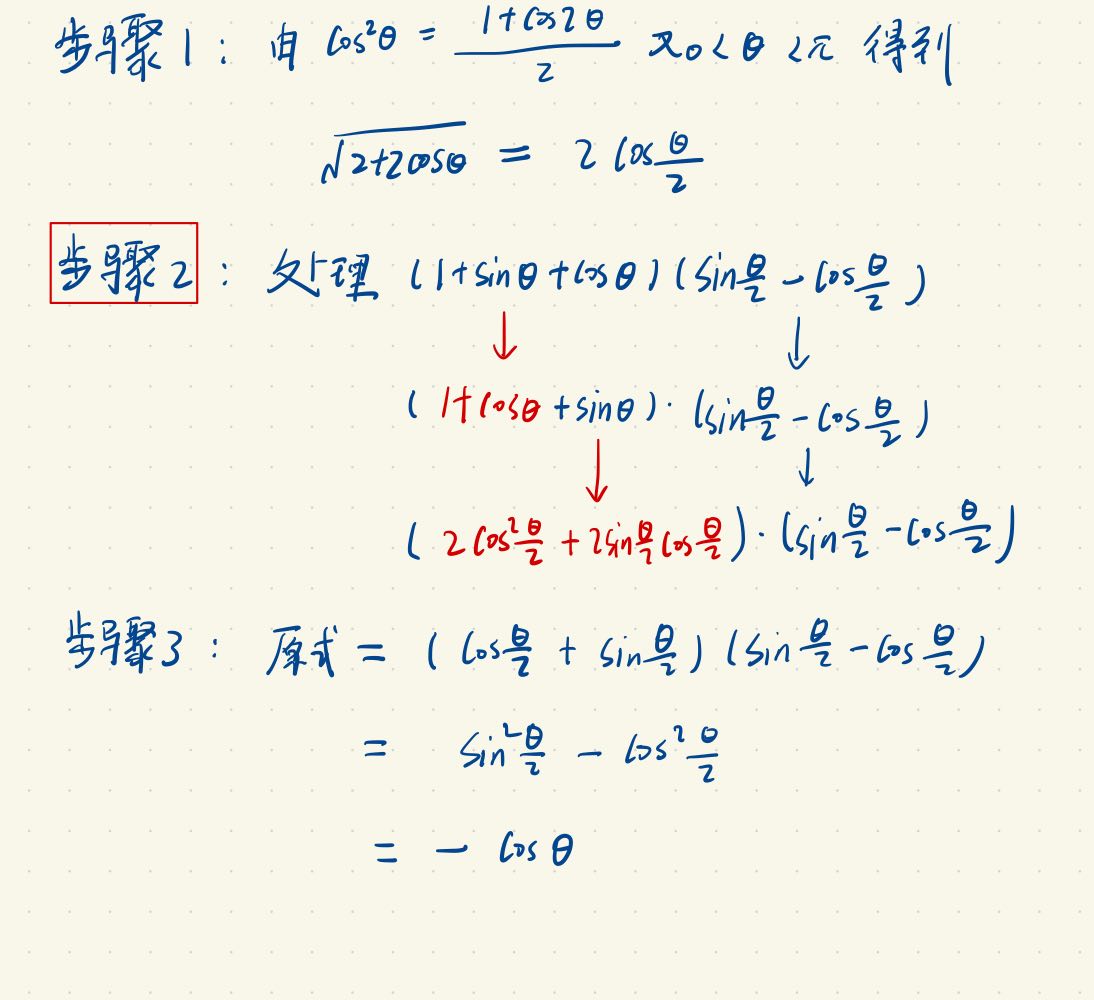 步骤1: 由 cos²θ = (1+cos2θ)/2 又0<θ<π 得到
√(2+2cosθ) = 2cos(θ/2)
步骤2: 处理 (1+sinθ+cosθ)(sin(θ/2) - cos(θ/2))
↓ ↓
(1+cosθ+sinθ)·(sin(θ/2) - cos(θ/2))
↓ ↓
(2cos²(θ/2) + 2sin(θ/2)cos(θ/2))·(sin(θ/2) - cos(θ/2))
步骤3: 原式 = (cos(θ/2) + sin(θ/2))(sin(θ/2) - cos(θ/2))
= sin²(θ/2) - cos²(θ/2)
= - cosθ